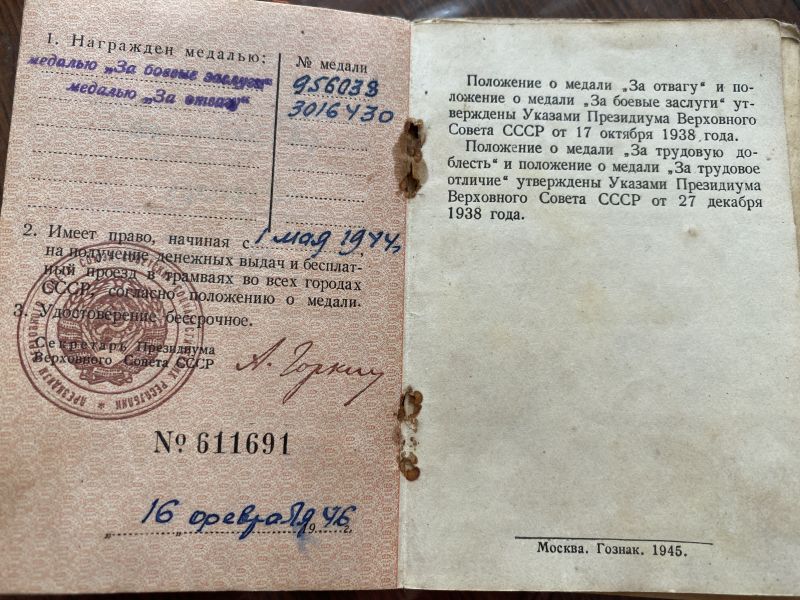 1. Награжден медалью:
№ медали
медалью „За боевые заслуги“
956038
медалью „За отвагу“
3016430
2. Имеет право, начиная с 1 мая 1944 г.,
на получение денежных выдач и бесплат-
ный проезд в трамваях во всех городах
СССР, согласно положению о медали.
3. Удостоверение бессрочное.
Секретарь Президиума
Верховного Совета СССР
А. Горкин
№ 611691
„16“ февраля 1946 г.
Положение о медали „За отвагу“ и по-
ложение о медали „За боевые заслуги“ ут-
верждены Указами Президиума Верховного
Совета СССР от 17 октября 1938 года.
Положение о медали „За трудовую до-
блесть“ и положение о медали „За трудовое
отличие“ утверждены Указами Президиума
Верховного Совета СССР от 27 декабря
1938 года.
Москва. Гознак. 1945.